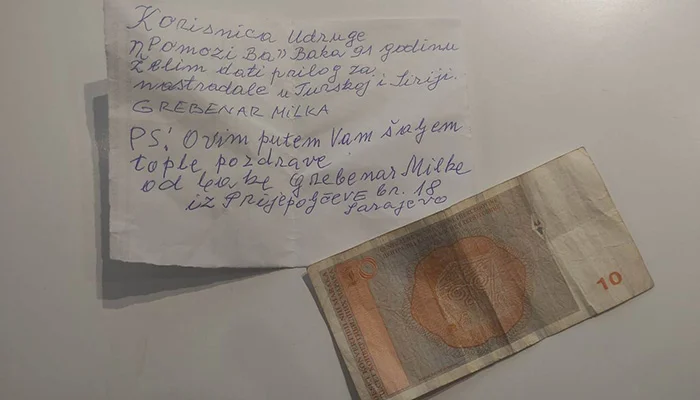 Korisnica Udruge
"Pomozi Ba" Baka 91 godinu
Želim dati prilog za
nastradale u Turskoj i Siriji.
GREBENAR MILKA
PS! Ovim putem Vam šaljem
tople pozdrave
od bake Grebenar Milke
iz Prijepoljčeve br. 18
Sarajevo
10
10